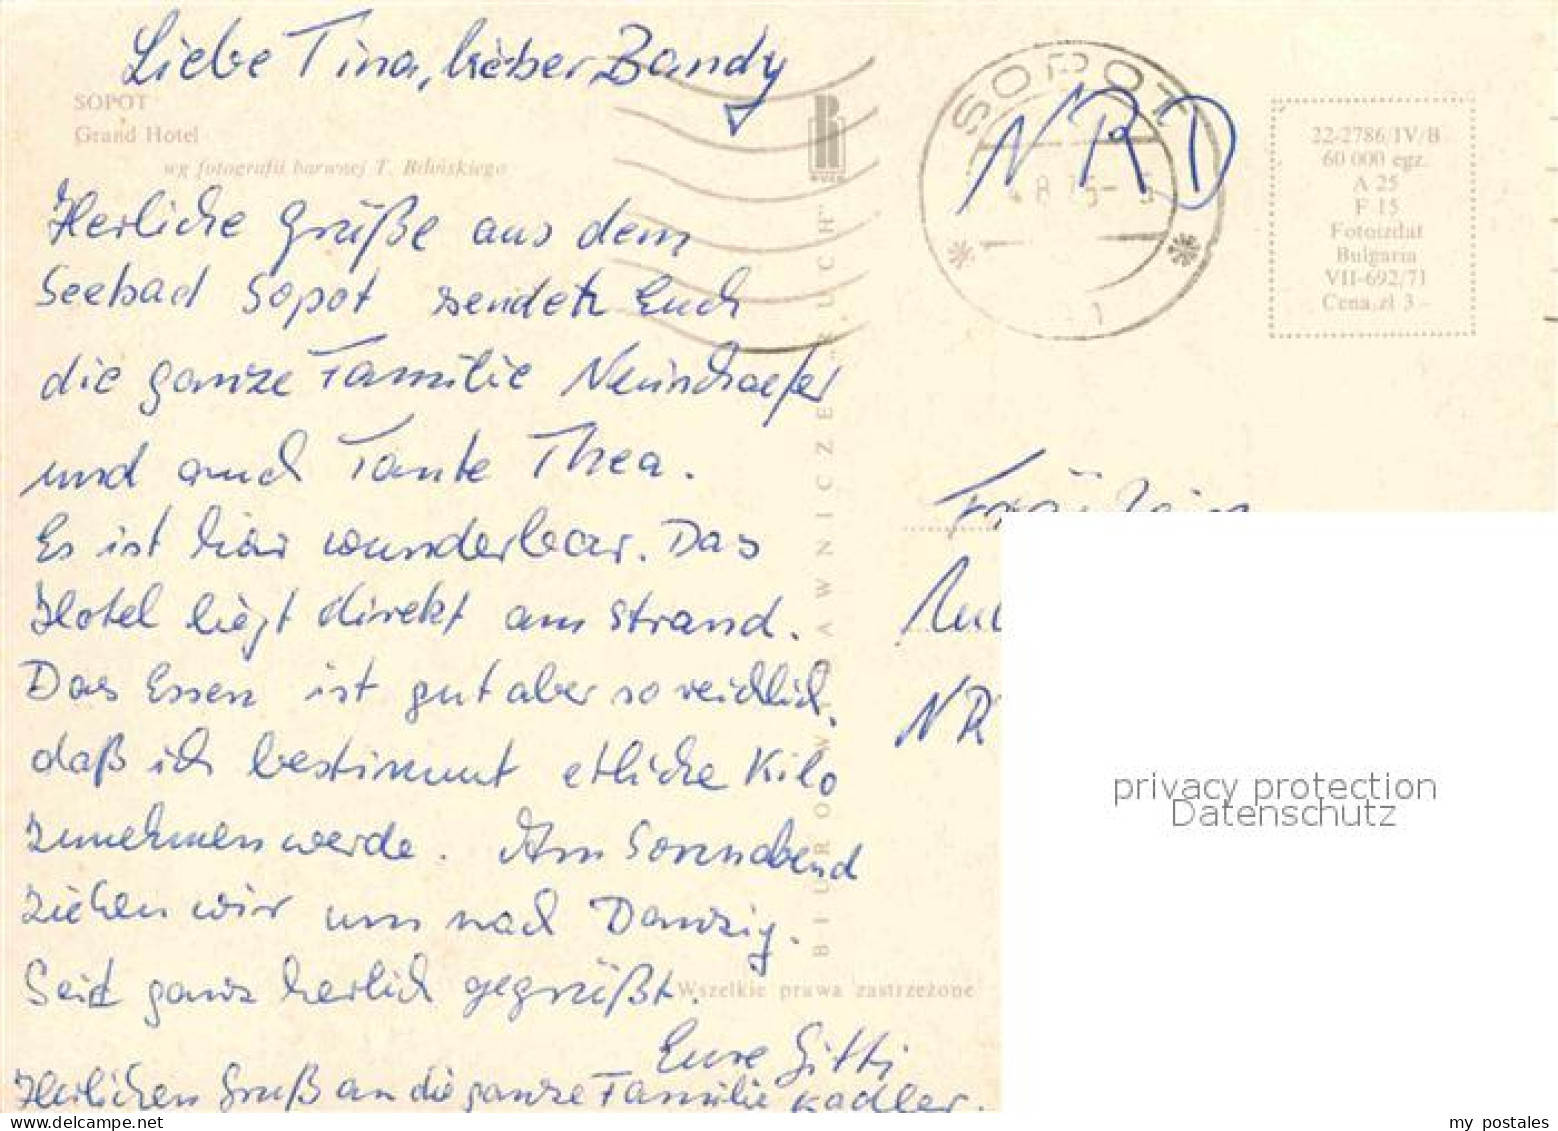 Liebe Tina, lieber Bandy
SOPOT
Grand Hotel
wg fotografii barwnej T. Bilińskiego
Herliche Grüße aus dem
Seebad Sopot sendetn Euch
die ganze Familie
und auch Tante Thea.
Es ist hier wunderbar. Das
Hotel liegt direkt am Strand.
Das Essen ist gut aber so reichlich,
daß ich bestimmt etliche Kilo
zunehmen werde. Am Sonnabend
ziehen wir um nach Danzig.
Seid ganz herlich gegrüßt.
Eure Gitti
Herlichen Gruß an die ganze Familie Kadler.
RUCH
BIURO WYDAWNICZE RUCH
Wszelkie prawa zastrzeżone
SOPOT
1
NRD
22-2786/IV/B
60 000 egz.
A 25
F 15
Fotoizdat
Bulgaria
VII-692/71
Cena zł 3 -
Fräulein
NR
privacy protection
Datenschutz
www.delcampe.net
my_postales